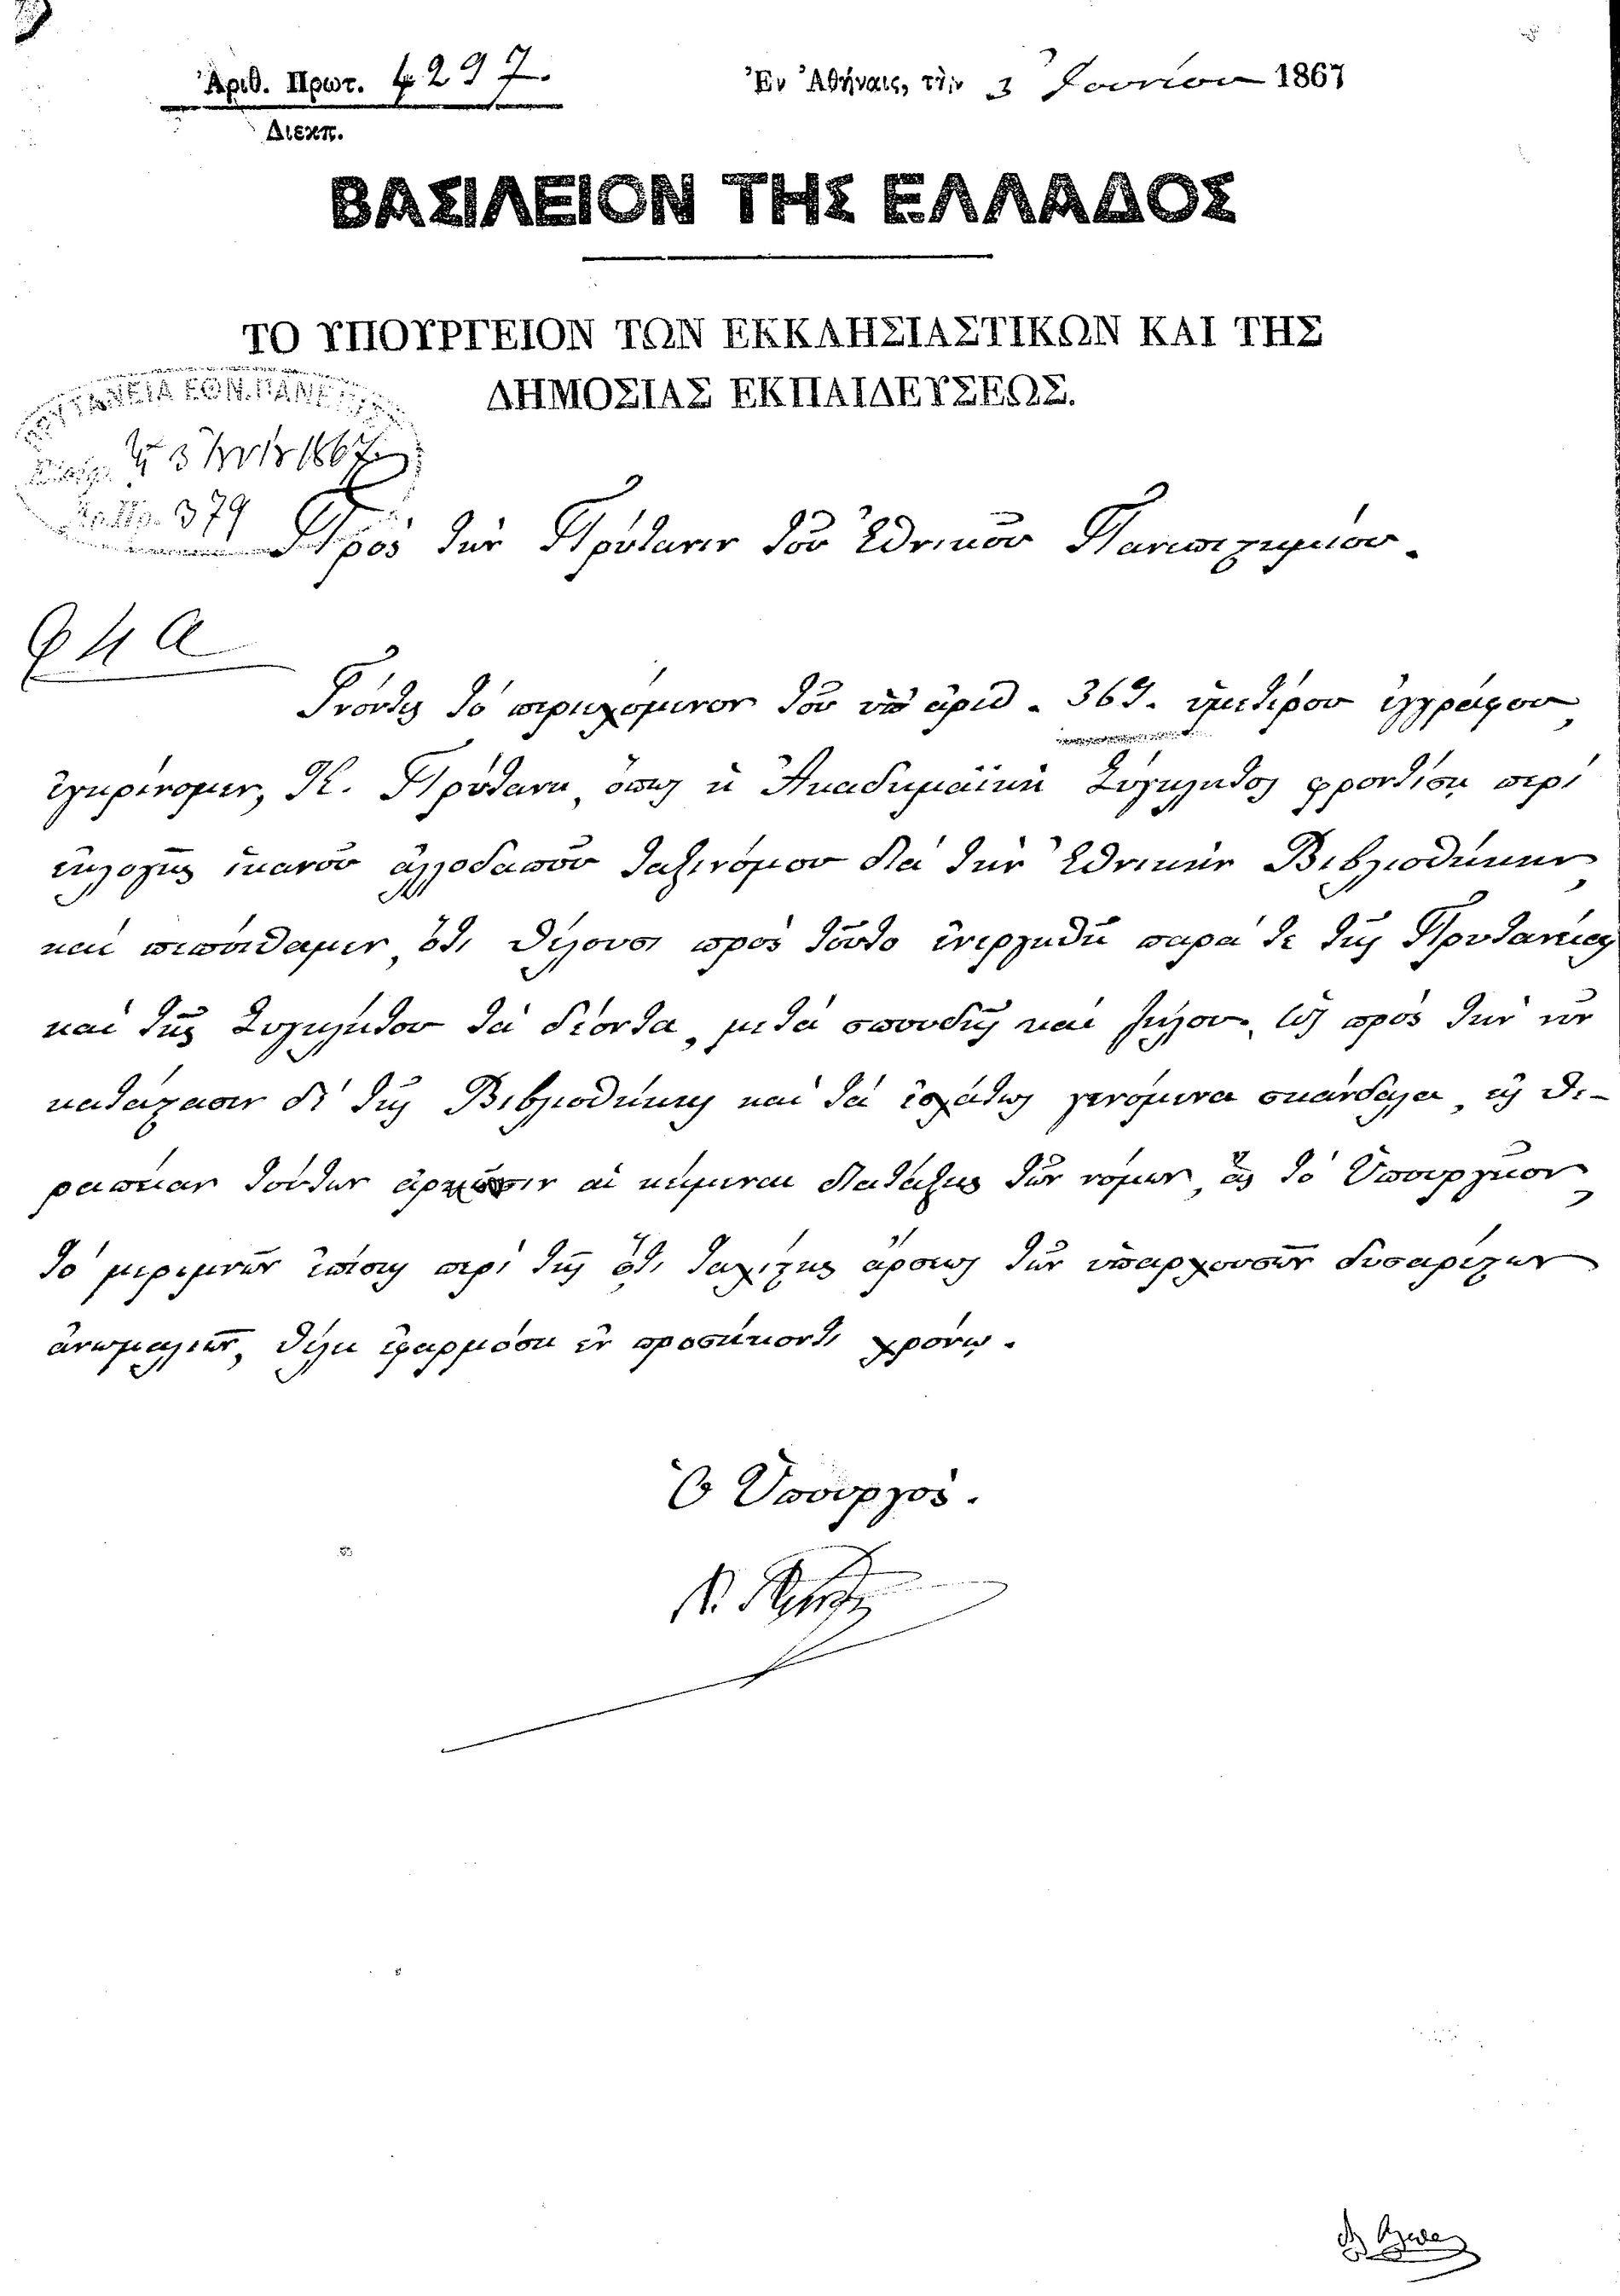 Ἀριθ. Πρωτ. 4297.
Διεκπ.
Ἐν Ἀθήναις, τὴν 3 Ἰουνίου 1867
ΒΑΣΙΛΕΙΟΝ ΤΗΣ ΕΛΛΑΔΟΣ
ΤΟ ΥΠΟΥΡΓΕΙΟΝ ΤΩΝ ΕΚΚΛΗΣΙΑΣΤΙΚΩΝ ΚΑΙ ΤΗΣ
ΔΗΜΟΣΙΑΣ ΕΚΠΑΙΔΕΥΣΕΩΣ.
ΠΡΥΤΑΝΕΙΑ ΕΘΝ. ΠΑΝΕΠΙΣ
τῇ 3 1867
379
Πρὸς τὸν Πρύτανιν τοῦ Ἐθνικοῦ Πανεπιστημίου.
Γνόντες τὸ περιεχόμενον τοῦ ὑπ' ἀριθ. 367. ὑμετέρου ἐγγράφου,
ἐγκρίνομεν, Κ. Πρύτανι, ὅπως ἡ Ἀκαδημαϊκὴ Σύγκλητος φροντίσῃ περὶ
ἐκλογῆς ἱκανοῦ ἀλλοδαποῦ ταξινόμου διὰ τὴν Ἐθνικὴν Βιβλιοθήκην,
καὶ πεποίθαμεν, ὅτι θέλουσι πρὸς τοῦτο ἐνεργηθῆ παρά τε τῆς Πρυτανείας
καὶ τῆς Συγκλήτου τὰ δέοντα, μετὰ σπουδῆς καὶ ζήλου. Ὡς πρὸς τὴν νῦν
κατάστασιν δὲ τῆς Βιβλιοθήκης καὶ τὰ ἐσχάτως γενόμενα σκάνδαλα, εἰς θε-
ραπείαν τούτων ἀρκοῦσιν αἱ κείμεναι διατάξεις τῶν νόμων, ἃς τὸ Ὑπουργεῖον,
τὸ μεριμνῶν ἐπίσης περὶ τῆς ὅτι ταχίστης ἄρσεως τῶν ὑπαρχουσῶν δυσαρέστων
ἀνωμαλιῶν, θέλει ἐφαρμόσει ἐν προσήκοντι χρόνῳ.
Ὁ Ὑπουργός.